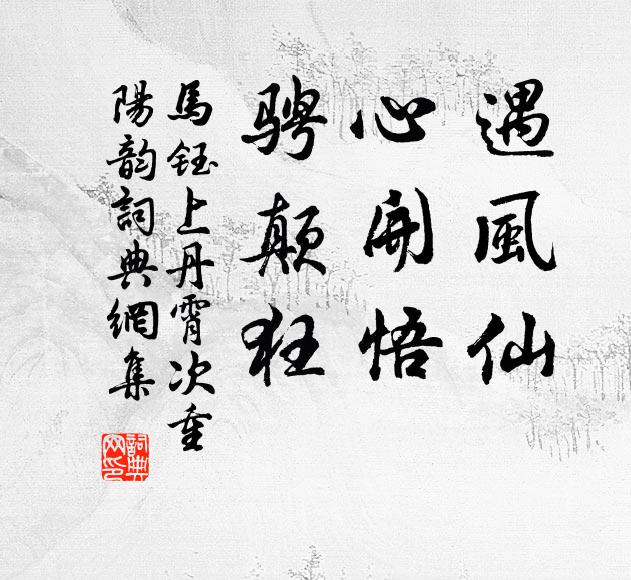 遇風仙
心開悟
骋顛狂
馬钰上丹霄次重
陽韵詞典網集
詞典
网印